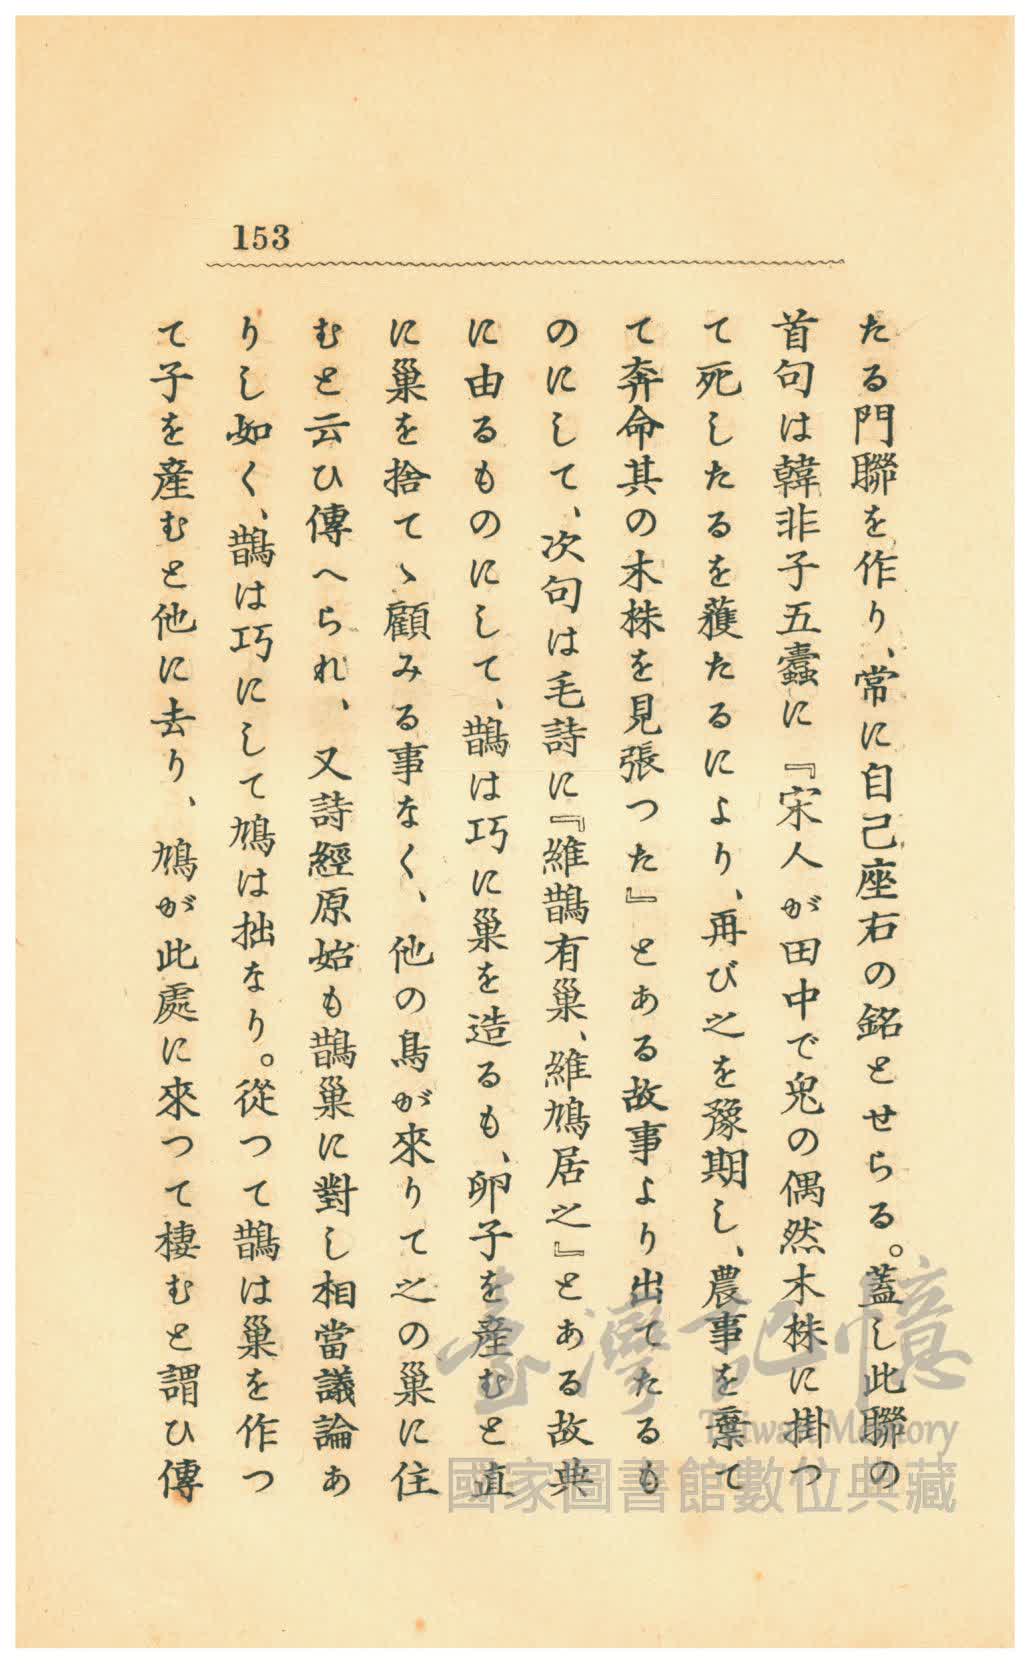 153
たる門聯を作り、常に自己座右の銘とせらる。蓋し此聯の
首句は韓非子五蠹に『宋人が田中で兎の偶然木株に掛つ
て死したるを蒦たるにより、再び之を豫期し、農事を棄て
て奔命其の木株を見張つた』とある故事より出てたるも
のにして、次句は毛詩に『維鵲有巢、維鳩居之』とある故典
に由るものにして、鵲は巧に巢を造るも、卵子を産むと直
に巢を捨てゝ顧みる事なく、他の鳥が來りて之の巢に住
むと云ひ傳へられ、又詩經原始も鵲巢に對し相當議論あ
りし如く、鵲は巧にして鳩は拙なり。從つて鵲は巢を作つ
て子を産むと他に去り、鳩が此處に來つて棲むと謂ひ傳
臺灣記憶
Taiwan Memory
國家圖書館數位典藏